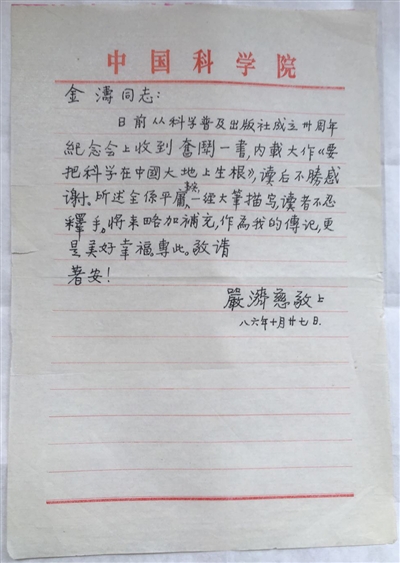 中国科学院
金濤同志：
日前从科学普及出版社成立卅周年
紀念会上收到奮鬪一書，内載大作《要
把科学在中國大地上生根》，读后不勝感
谢。所述全係平庸事实，一經大筆描写，读者不忍
釋手。将来略加補充，作為我的傳记，更
是美好幸福。專此。敬请
著安！
嚴濟慈敬上
八六年十月廿七日.